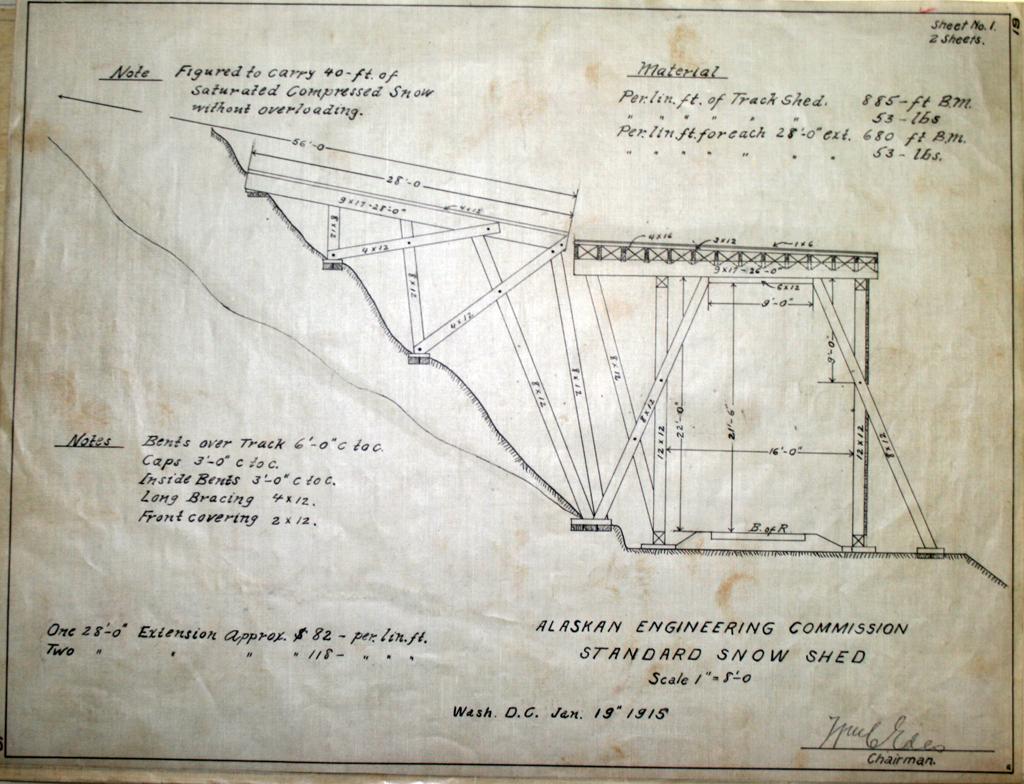 Sheet No. 1.
2 Sheets.
19
Note Figured to carry 40-ft. of
Saturated Compressed Snow
without overloading.
Material
Per. lin. ft. of Track Shed. 885-ft B.M.
" " " " " 53-lbs
Per. lin. ft. for each 28'-0" ext. 680 ft B.M.
" " " " " " 53-lbs.
56'-0
28'-0
9x17-28'-0"
4x12
8x12
4x12
8x12
4x12
8x12
8x12
8x12
4x16
3x12
1x6
9x17-26'-0"
6x12
9'-0"
9'-0"
8x12
12x12
22'-0"
21'-6"
16'-0"
12x12
8x12
B. of R
Notes Bents over Track 6'-0" C to C.
Caps 3'-0" C to C.
Inside Bents 3'-0" C to C.
Long Bracing 4x12.
Front covering 2x12.
One 28'-0" Extension Approx. $82- per. lin. ft.
Two " " " " 118- " " "
ALASKAN ENGINEERING COMMISSION
STANDARD SNOW SHED
Scale 1"=8'-0
Wash. D.C. Jan. 19" 1915
Wm C Edes
Chairman.